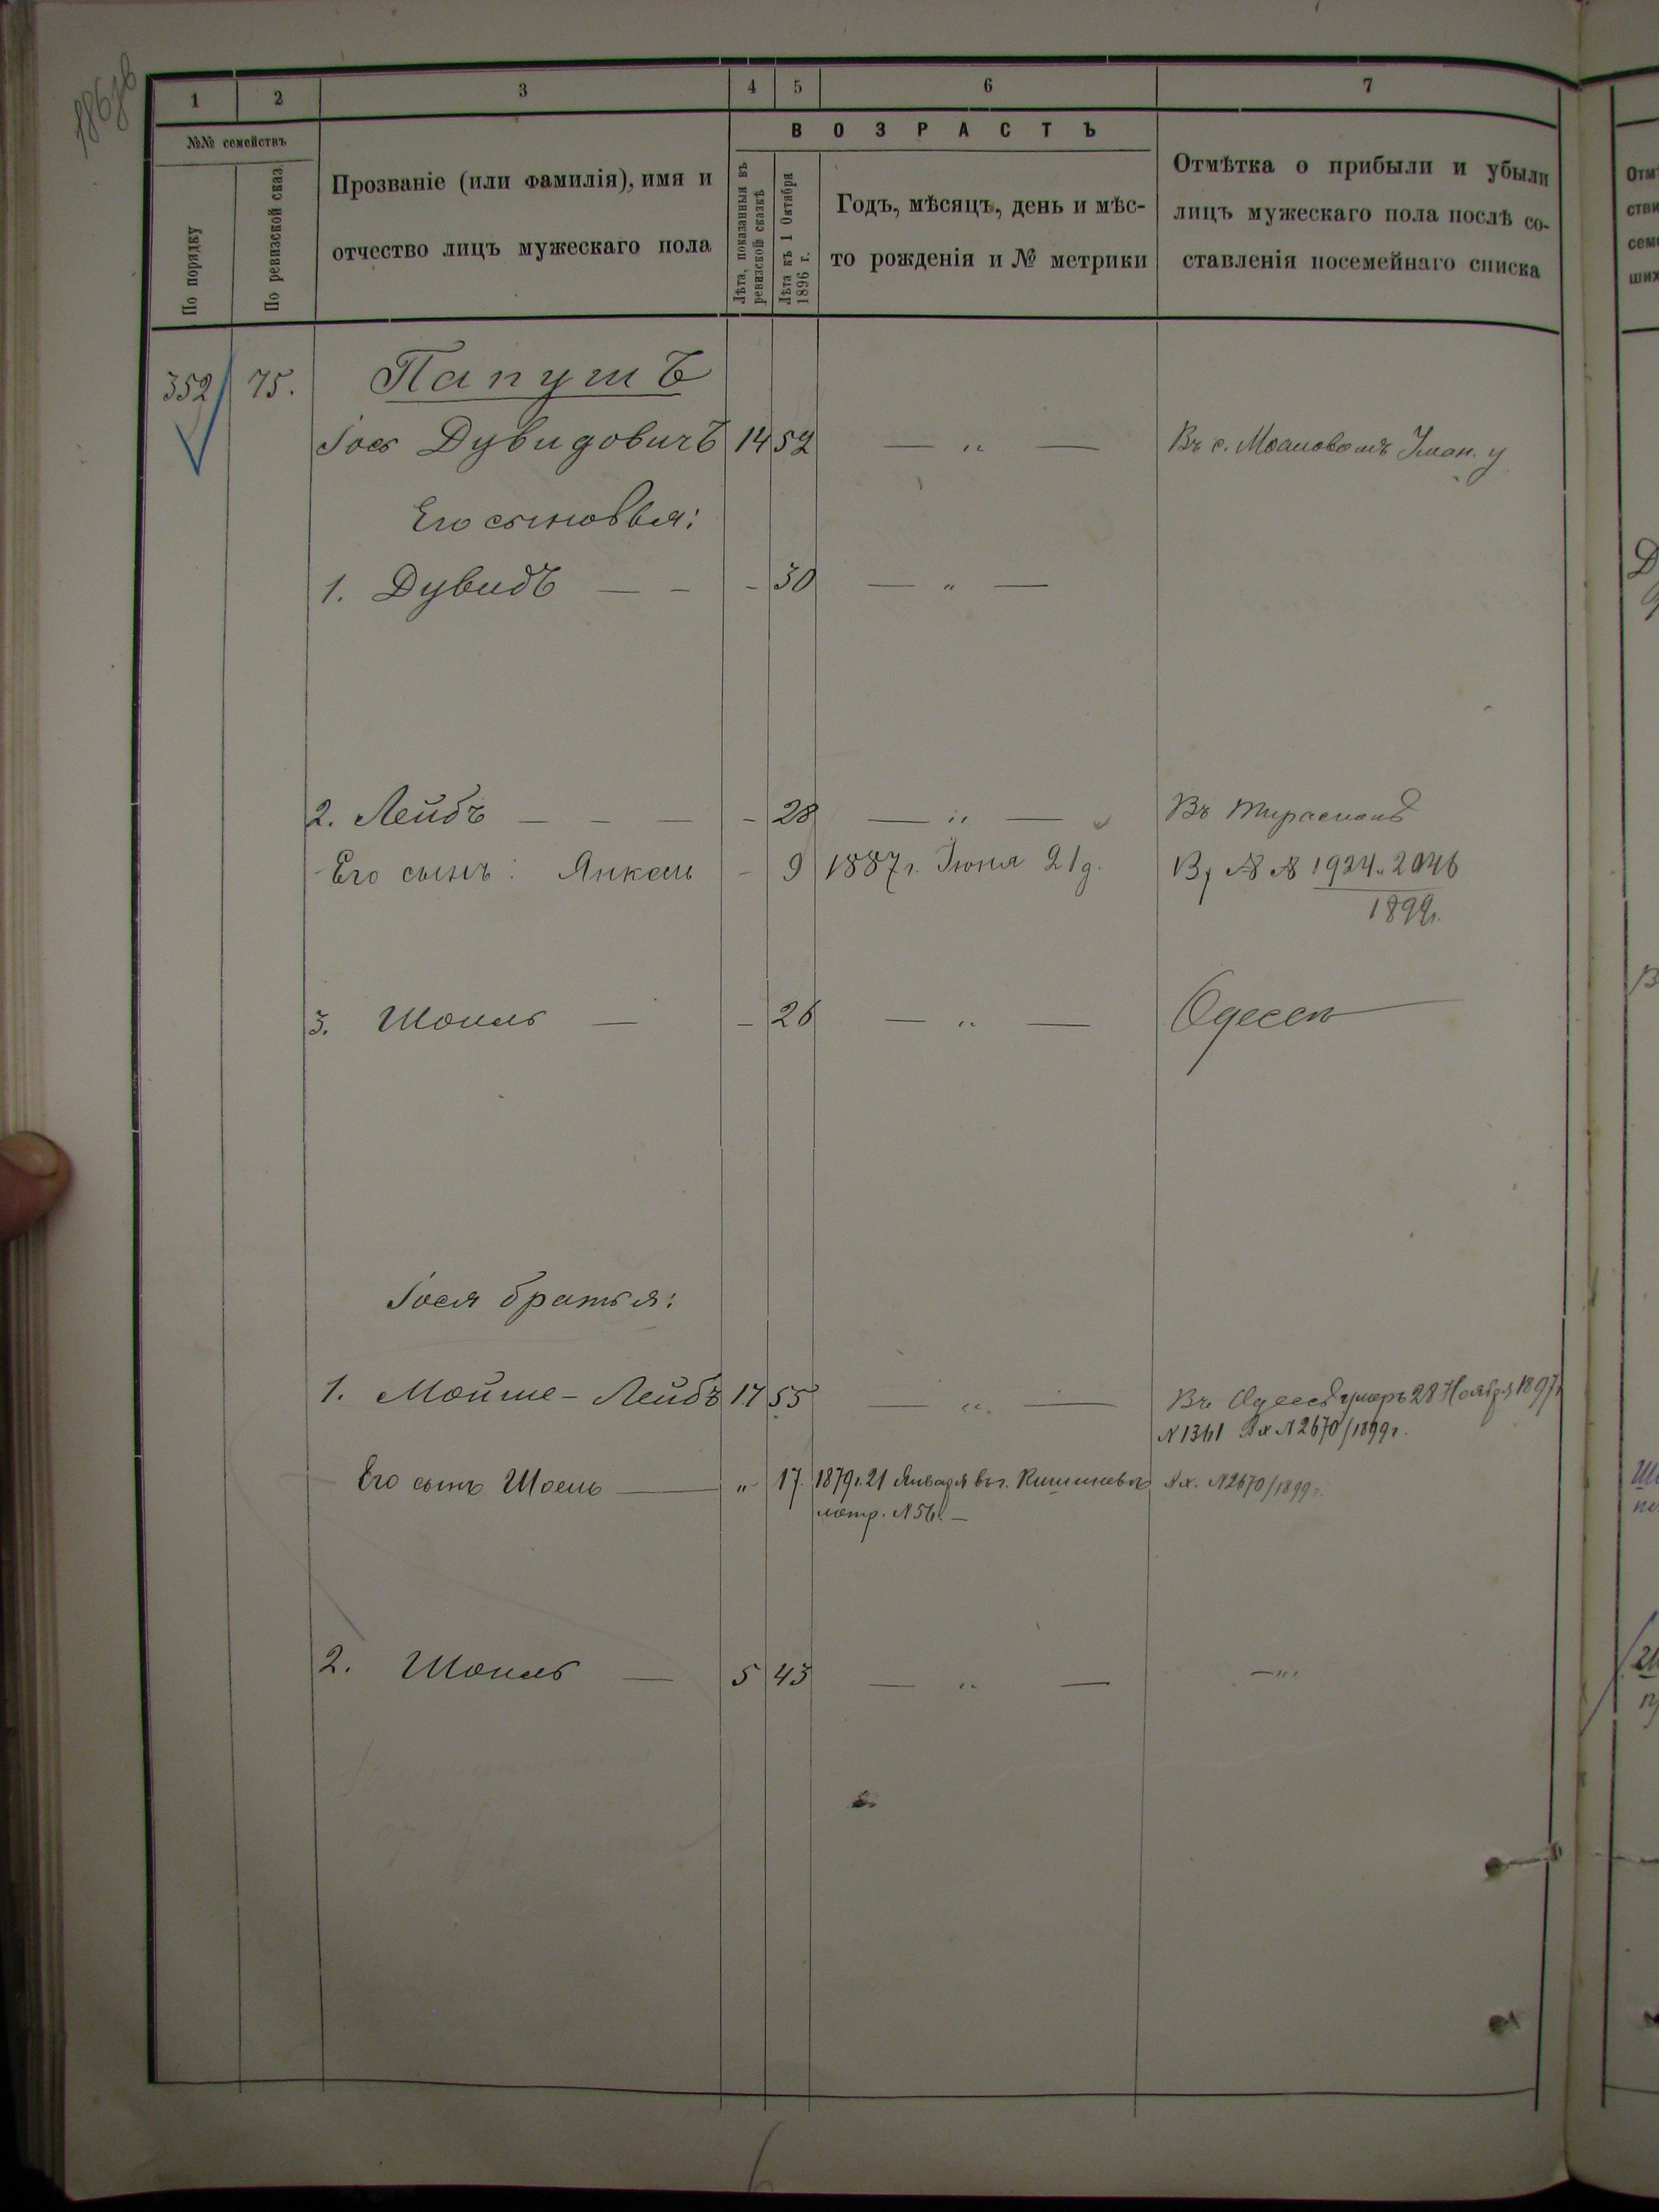 1 2 3 4 5 6 7
№№ семействъ
По порядку
По ревизской сказ.
Прозваніе (или фамилія), имя и
отчество лицъ мужескаго пола
В О З Р А С Т Ъ
Лѣта, показанныя въ
ревизской сказкѣ
Лѣта къ 1 Октября
1896 г.
Годъ, мѣсяцъ, день и мѣс-
то рожденія и № метрики
Отмѣтка о прибыли и убыли
лицъ мужескаго пола послѣ со-
ставленія посемейнаго списка
352 75. Папушъ
Іось Дувидовичъ 14 52 — „ — Въ с.
Его сыновья:
1. Дувидъ — - - 30 — „ —
2. Лейбъ — — — - 28 — „ — Въ Тирасполѣ
Его сынъ: Янкель - 9 1887 г. Іюня 21 д. 1924 „ 2046
1899 г.
3. Шоиль — - 26 — „ — Одесса
Іося братья:
1. Мойше-Лейбъ 17 55 — „ — Въ Одессѣ умеръ 28 Ноября 1897 г
N 1361 Вх N 2670/1899 г.
Его сынъ Шоель — „ 17 1879 г. 21 Января въ г. Кишиневѣ Вх. N 2670/1899 г.
метр. N 56. —
2. Шоиль — 5 43 — „ — — „